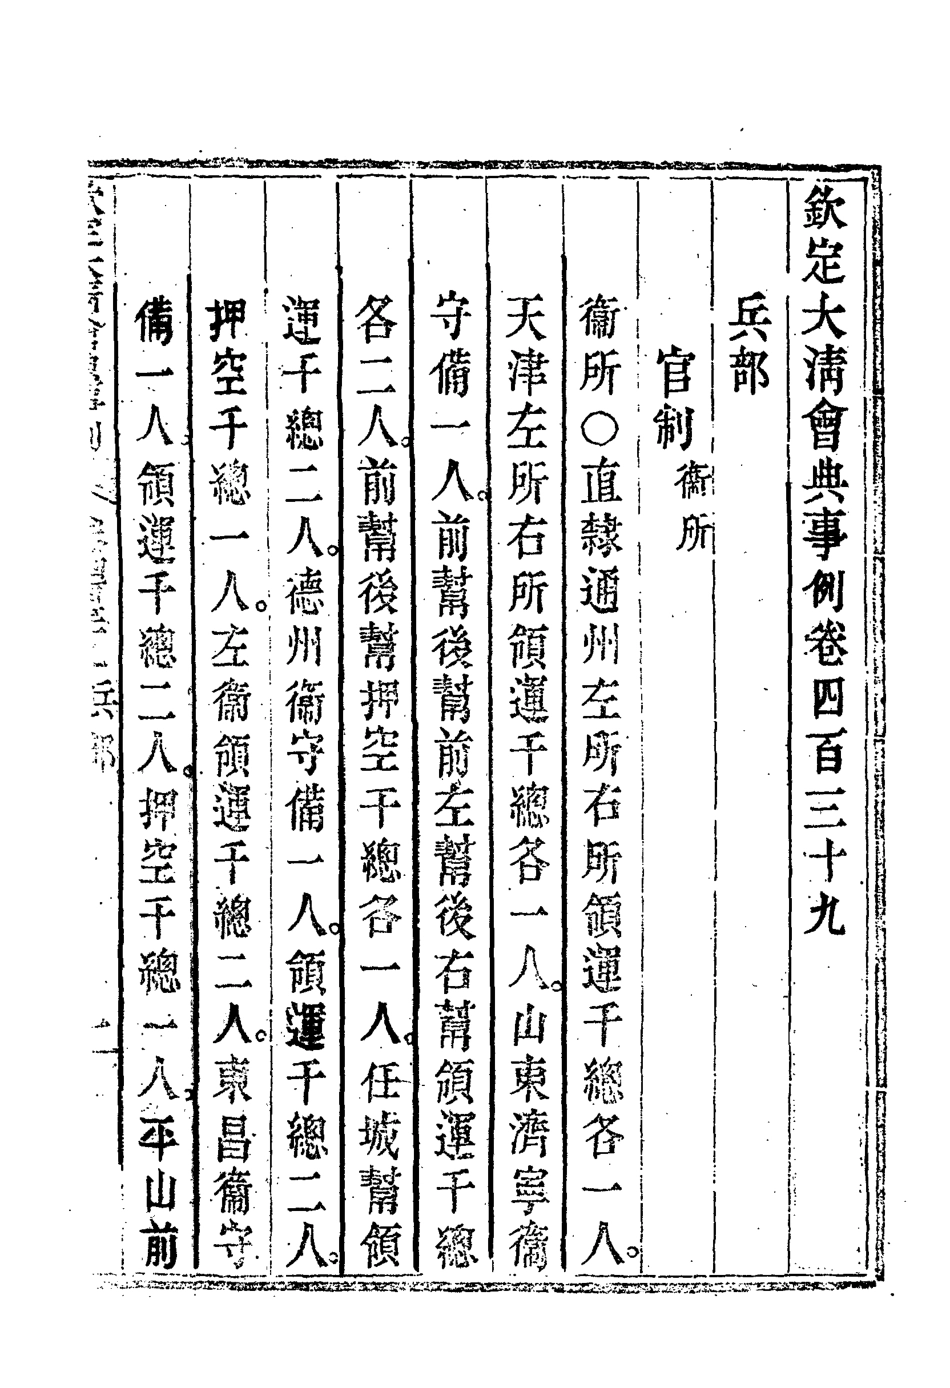 欽定大淸會典事例卷四百三十九
兵部
官制衞所
衞所○直隸通州左所右所領運千總各一人。
天津左所右所領運千總各一人。山東濟寧衞
守備一人。前幫後幫前左幫後右幫領運千總
各二人。前幫後幫押空千總各一人。任城幫領
運千總二人。德州衞守備一人。領運千總二人。
押空千總一人。左衞領運千總二人。東昌衞守
備一人。領運千總二人。押空千總一人。平山前
兵部